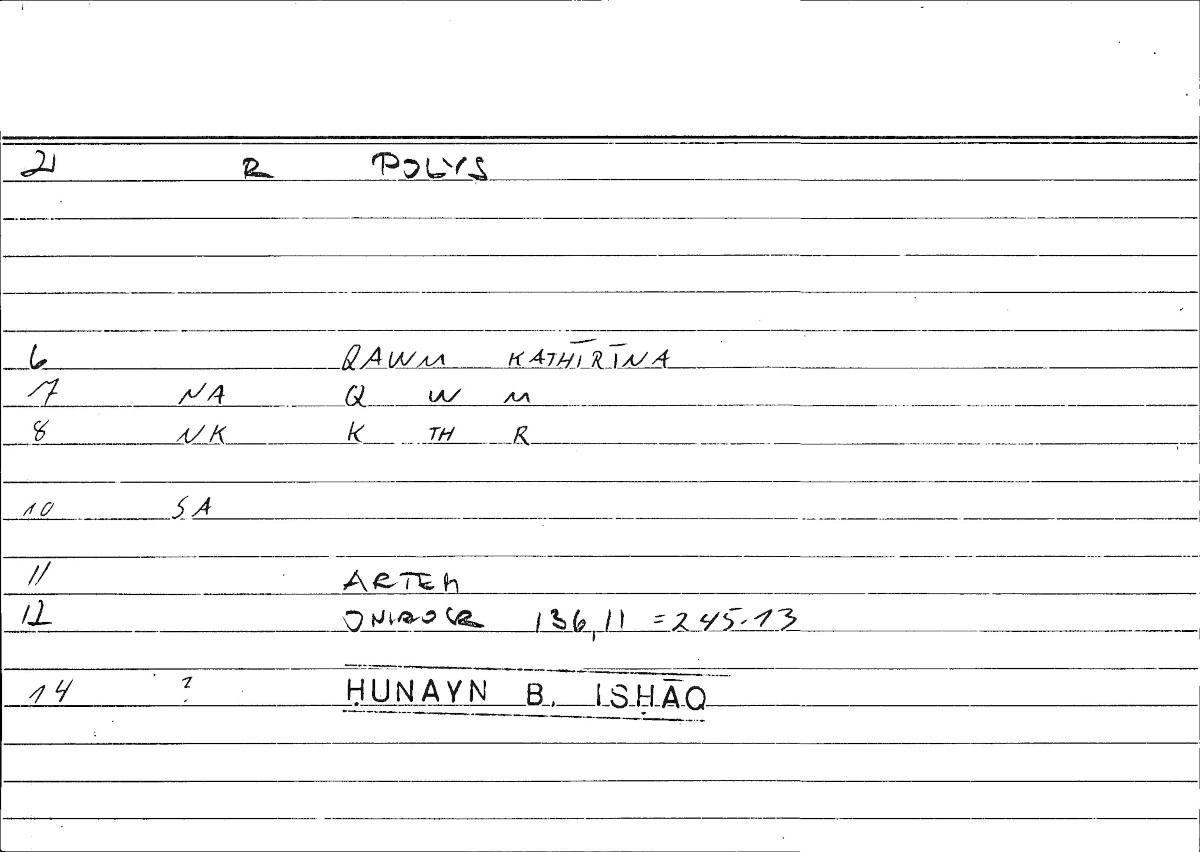 21 R POLYS
6 QAWM KATHĪRĪNA
7 NA Q W M
8 NK K TH R
10 SA
11 ARTEM
12 ONIROCR 136,11 = 245.13
14 ? ḤUNAYN B. ISḤĀQ